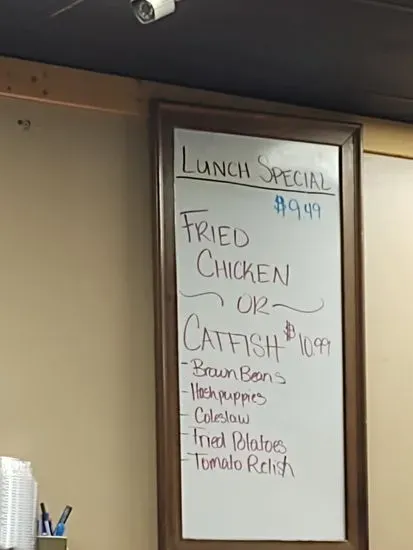 LUNCH SPECIAL
$9.49
FRIED
CHICKEN
OR
CATFISH $10.99
- Brown Beans
- Hushpuppies
- Coleslaw
- Fried Potatoes
- Tomato Relish